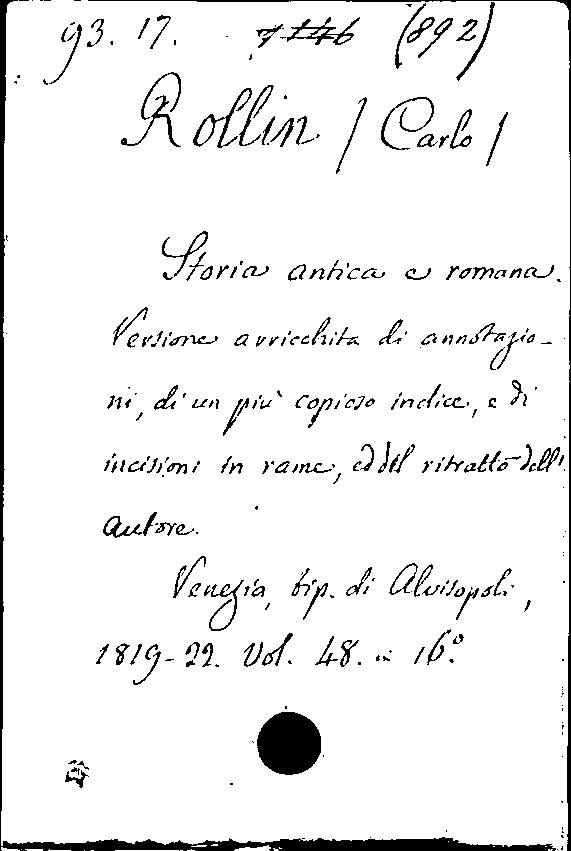 93. 17. 7146 (892)
Rollin / Carlo /
Storia antica e romana.
Versione arricchita di annotazio-
ni, di un più copioso indice, e di
incisioni in rame, ed del ritratto dell'
autore.
Venezia, tip. di Alvisopoli,
1819-22. Vol. 48. in 16.º